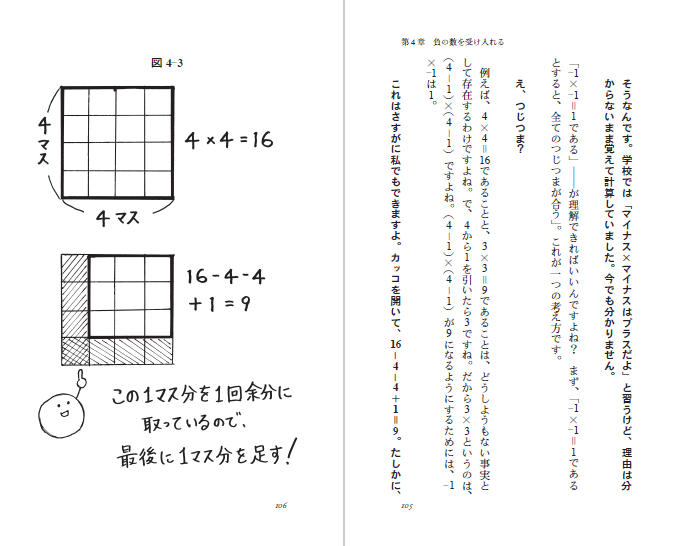 第4章 負の数を受け入れる
そうなんです。学校では「マイナス×マイナスはプラスだよ」と習うけど、理由は分
からないまま覚えて計算していました。今でも分かりません。
「-1×-1=1である」――が理解できればいいんですよね? まず、「-1×-1=1である
とすると、全てのつじつまが合う」。これが一つの考え方です。
え、つじつま?
例えば、4×4=16であることと、3×3=9であることは、どうしようもない事実と
して存在するわけですよね。で、4から1を引いたら3ですね。だから3×3というのは、
(4-1)×(4-1)ですよね。(4-1)×(4-1)が9になるようにするためには、-1
×-1は1。
これはさすがに私でもできますよ。カッコを開いて、16-4-4+1=9。たしかに、
105
図4-3
4マス
4×4=16
4マス
16-4-4
+1=9
この1マス分を1回余分に
取っているので、
最後に1マス分を足す!
106